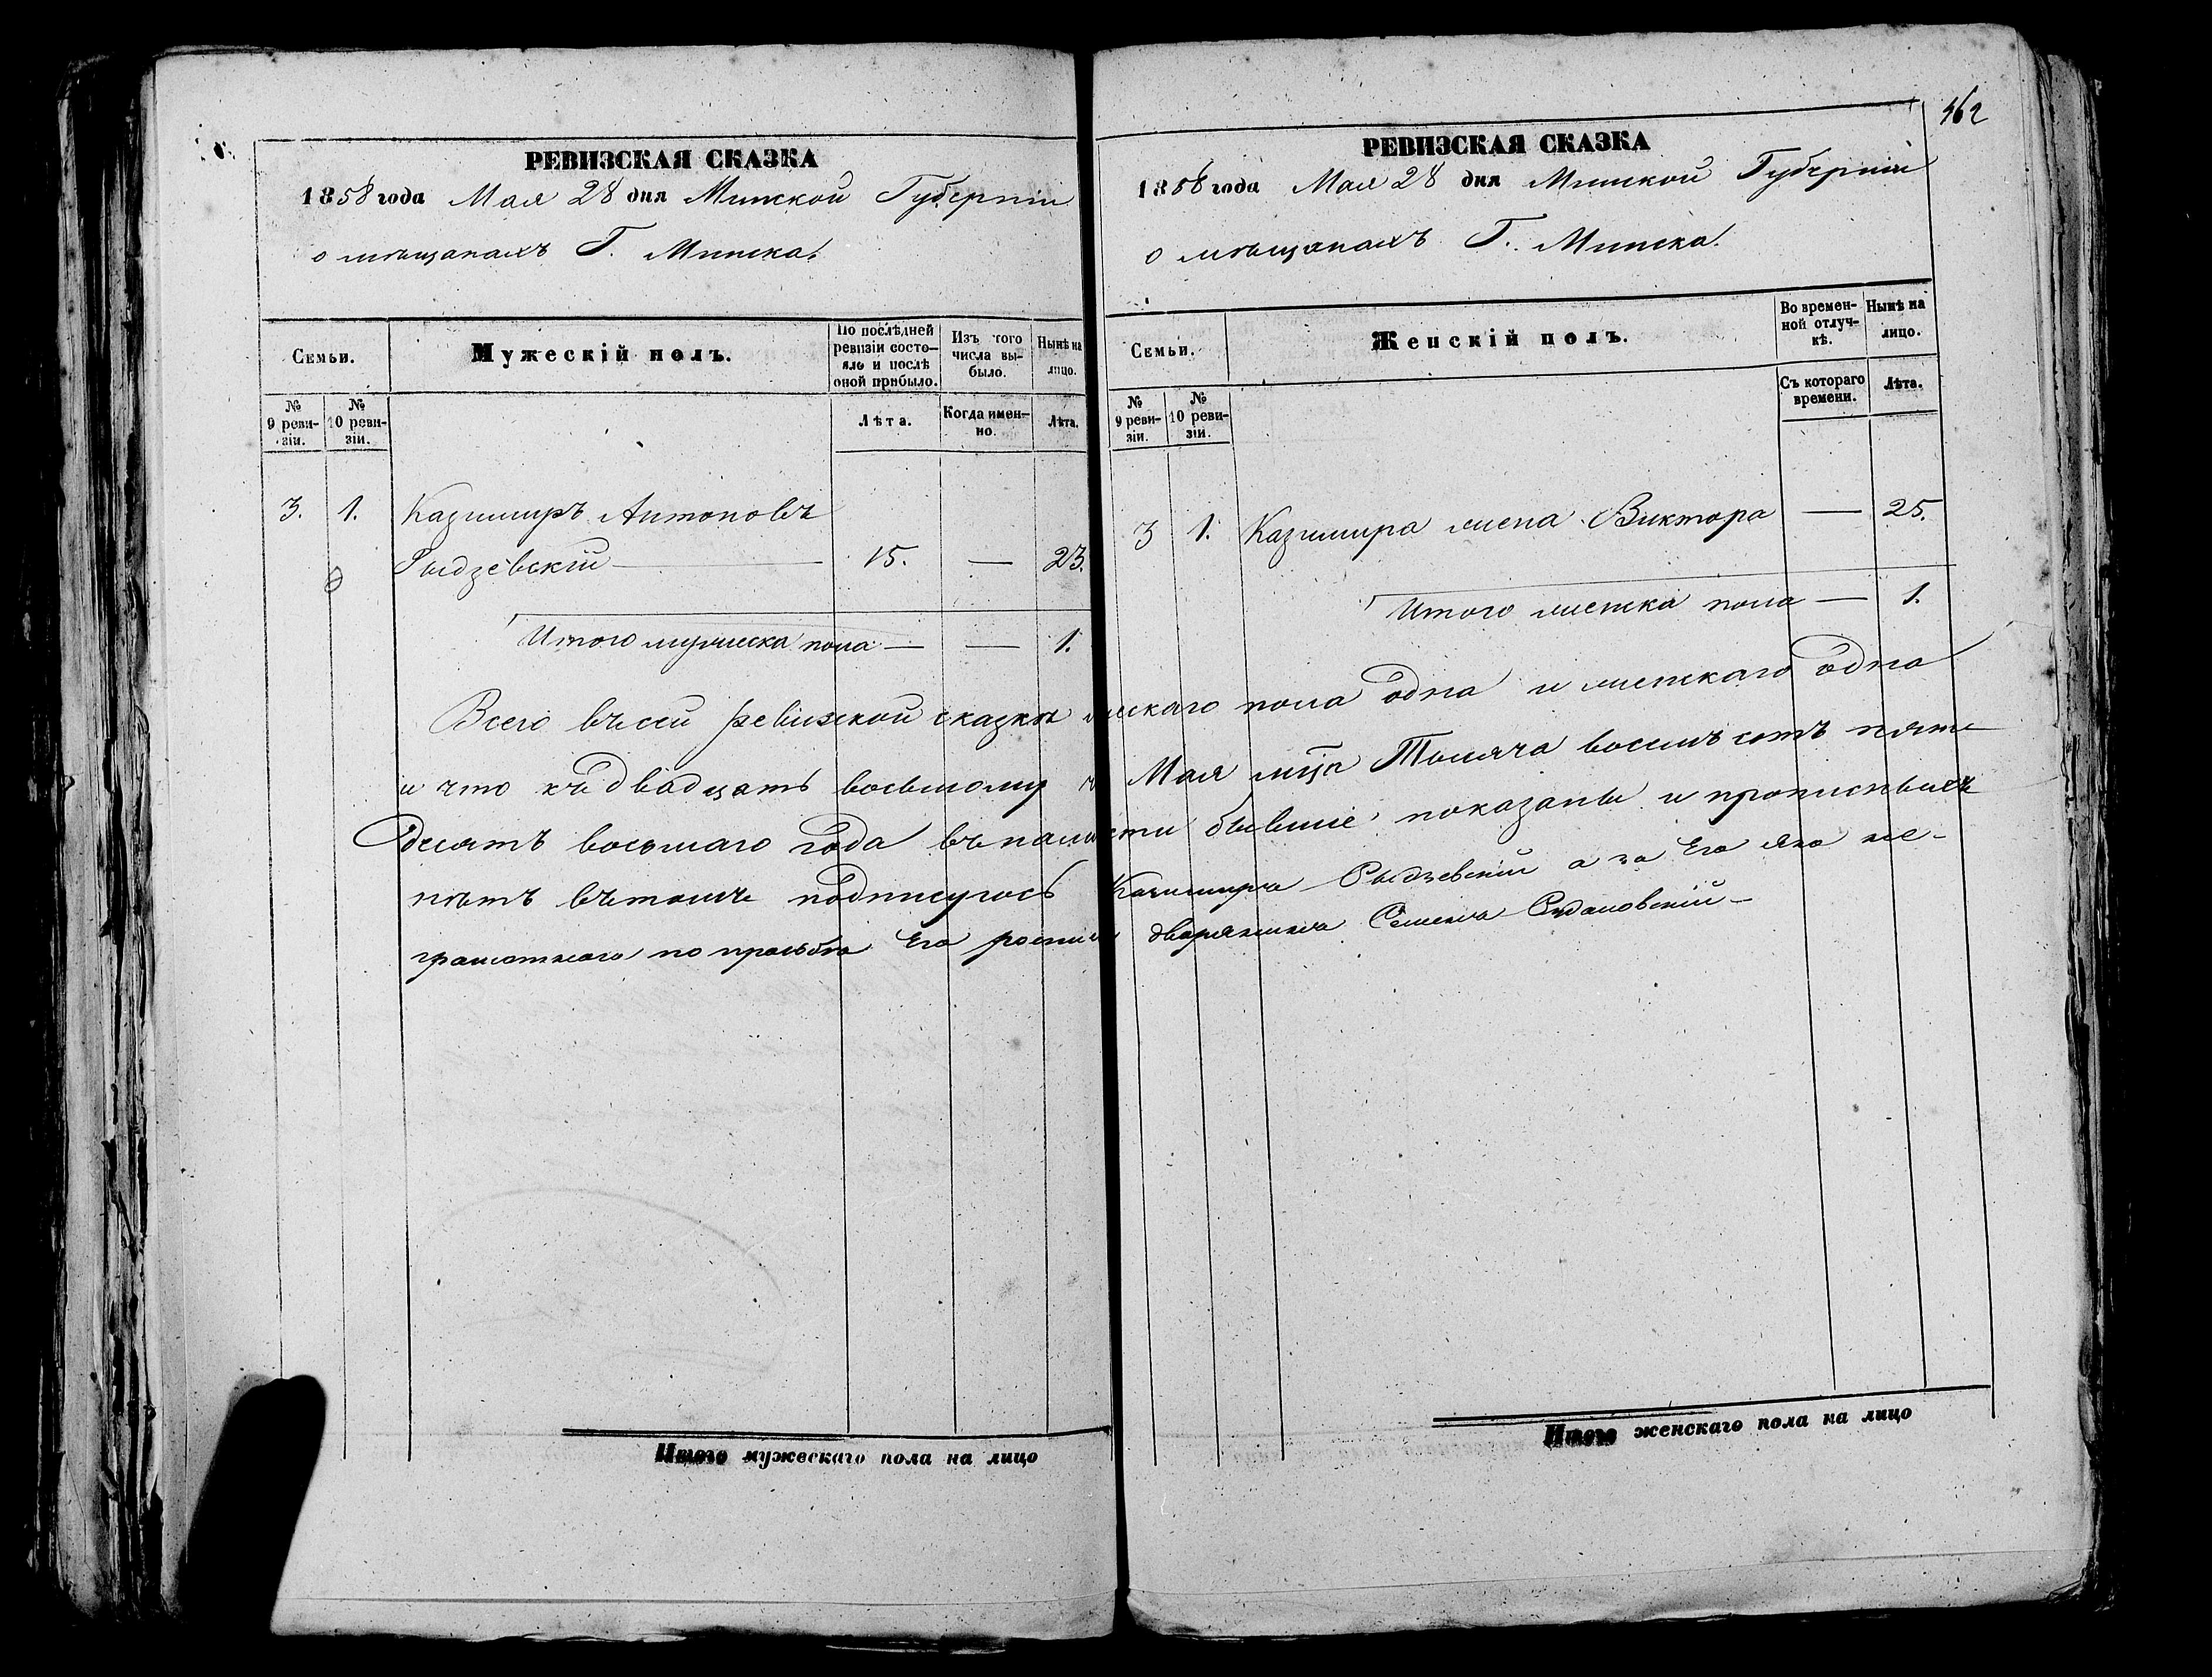 РЕВИЗСКАЯ СКАЗКА
1858 года Мая 28 дня Минской Губерніи
о мѣщанахъ Г. Минска.
Семьи.
Мужескій полъ.
По послѣдней ревизіи состояло и послѣ оной прибыло.
Изъ того числа выбыло.
Нынѣ на лицо.
№ 9 ревизіи.
№ 10 ревизіи.
Лѣта.
Когда именно.
Лѣта.
3. 1. Казимиръ Антоновъ
Рыдзевскій — 15. — 23.
Итого мужеска пола — — 1.
462
РЕВИЗСКАЯ СКАЗКА
1858 года Мая 28 дня Минской Губерніи
о мѣщанахъ Г. Минска.
Семьи.
Женскій полъ.
Во временной отлучкѣ.
Нынѣ на лицо.
№ 9 ревизіи.
№ 10 ревизіи.
Съ котораго времени.
Лѣта.
3 1. Казимира жена Виктора — 25.
Итого женска пола — 1.
Всего въ сей ревизской сказкѣ мескаго пола одна и женскаго одна
и что къ двадцать восьмому Мая мца Тысяча восемь сотъ пять
десятъ восьмаго года въналичности бывшіе показаны и прописныхъ
нѣтъ въ томъ подписуюсь Казимиръ Рыдзевскій а за Его яко не-
грамотнаго по просьбѣ Его дворянинъ Семенъ
Итого мужескаго пола на лицо
Итого женскаго пола на лицо